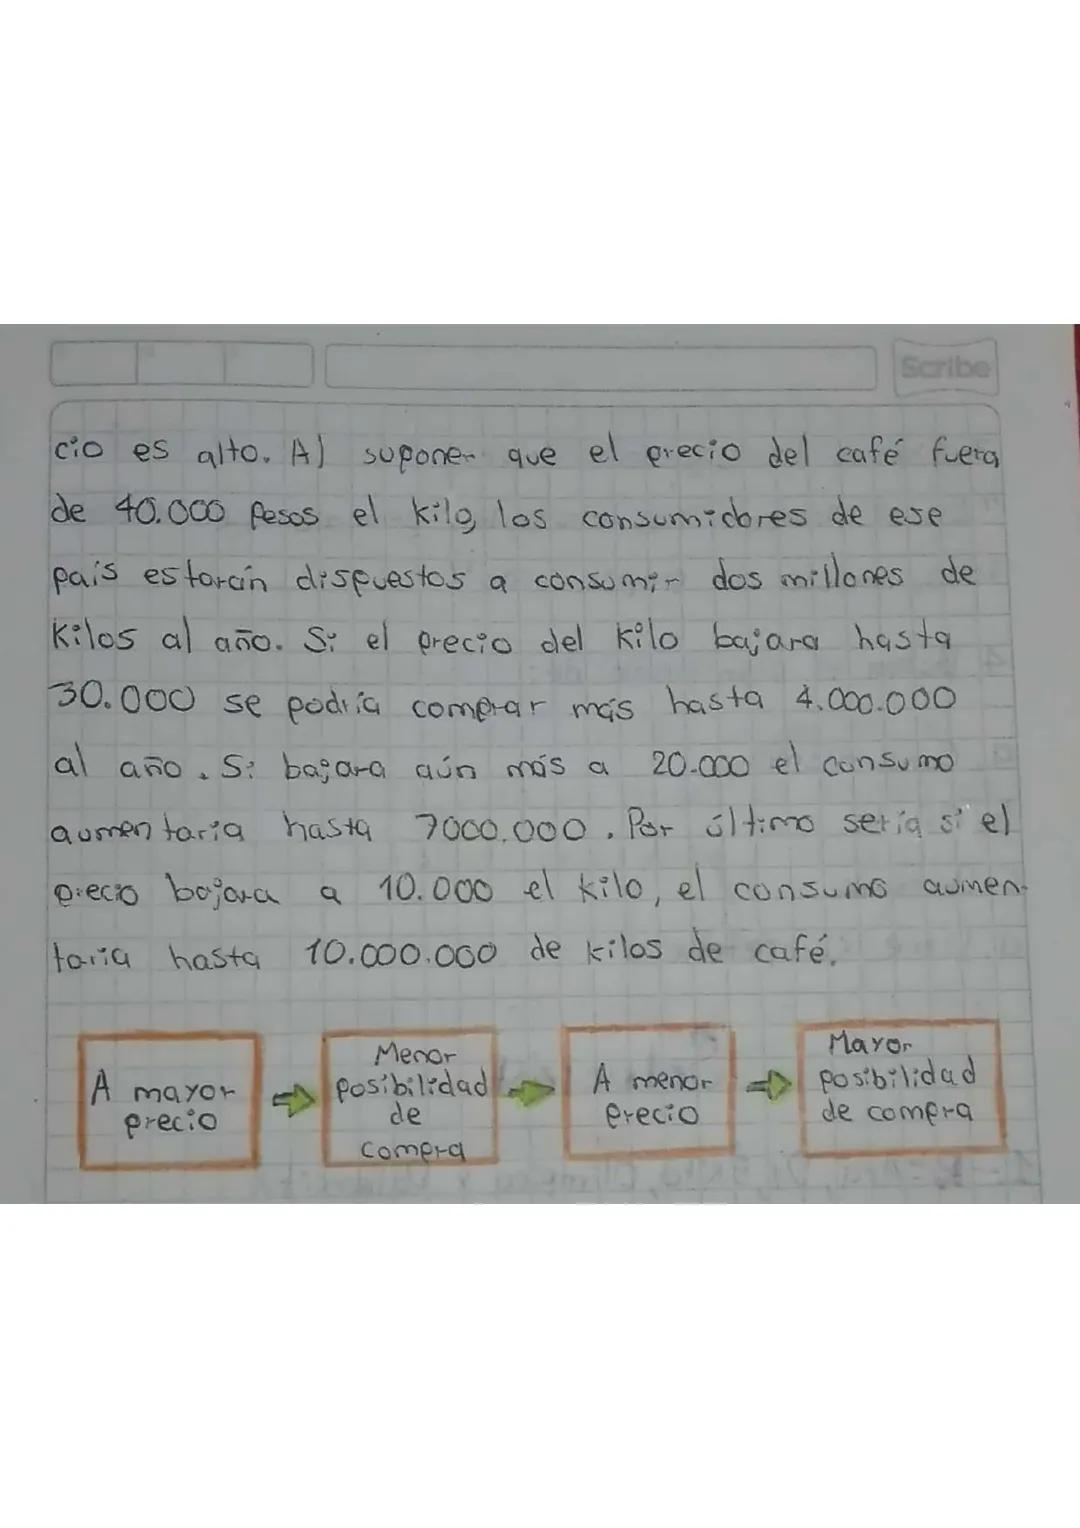 Scribe
cio es alto. Al suponer que el precio del café fuera
de 40.000 Pesos el kilo, los consumidores de ese
país estarán dispuestos a consumir dos millones de
Kilos al año. Si el precio del kilo bajara hasta
30.000 se podría comprar más hasta 4.000.000
al año. Si bajara aún más a 20.000 el consumo
aumentaria hasta 7000.000. Por último seria si el
precio bajara a 10.000 el kilo, el consumo aumen-
taria hasta 10.000.000 de kilos de café.
A mayor
precio
Menor
posibilidad
de
compra
A menor
precio
Mayor
posibilidad
de compra